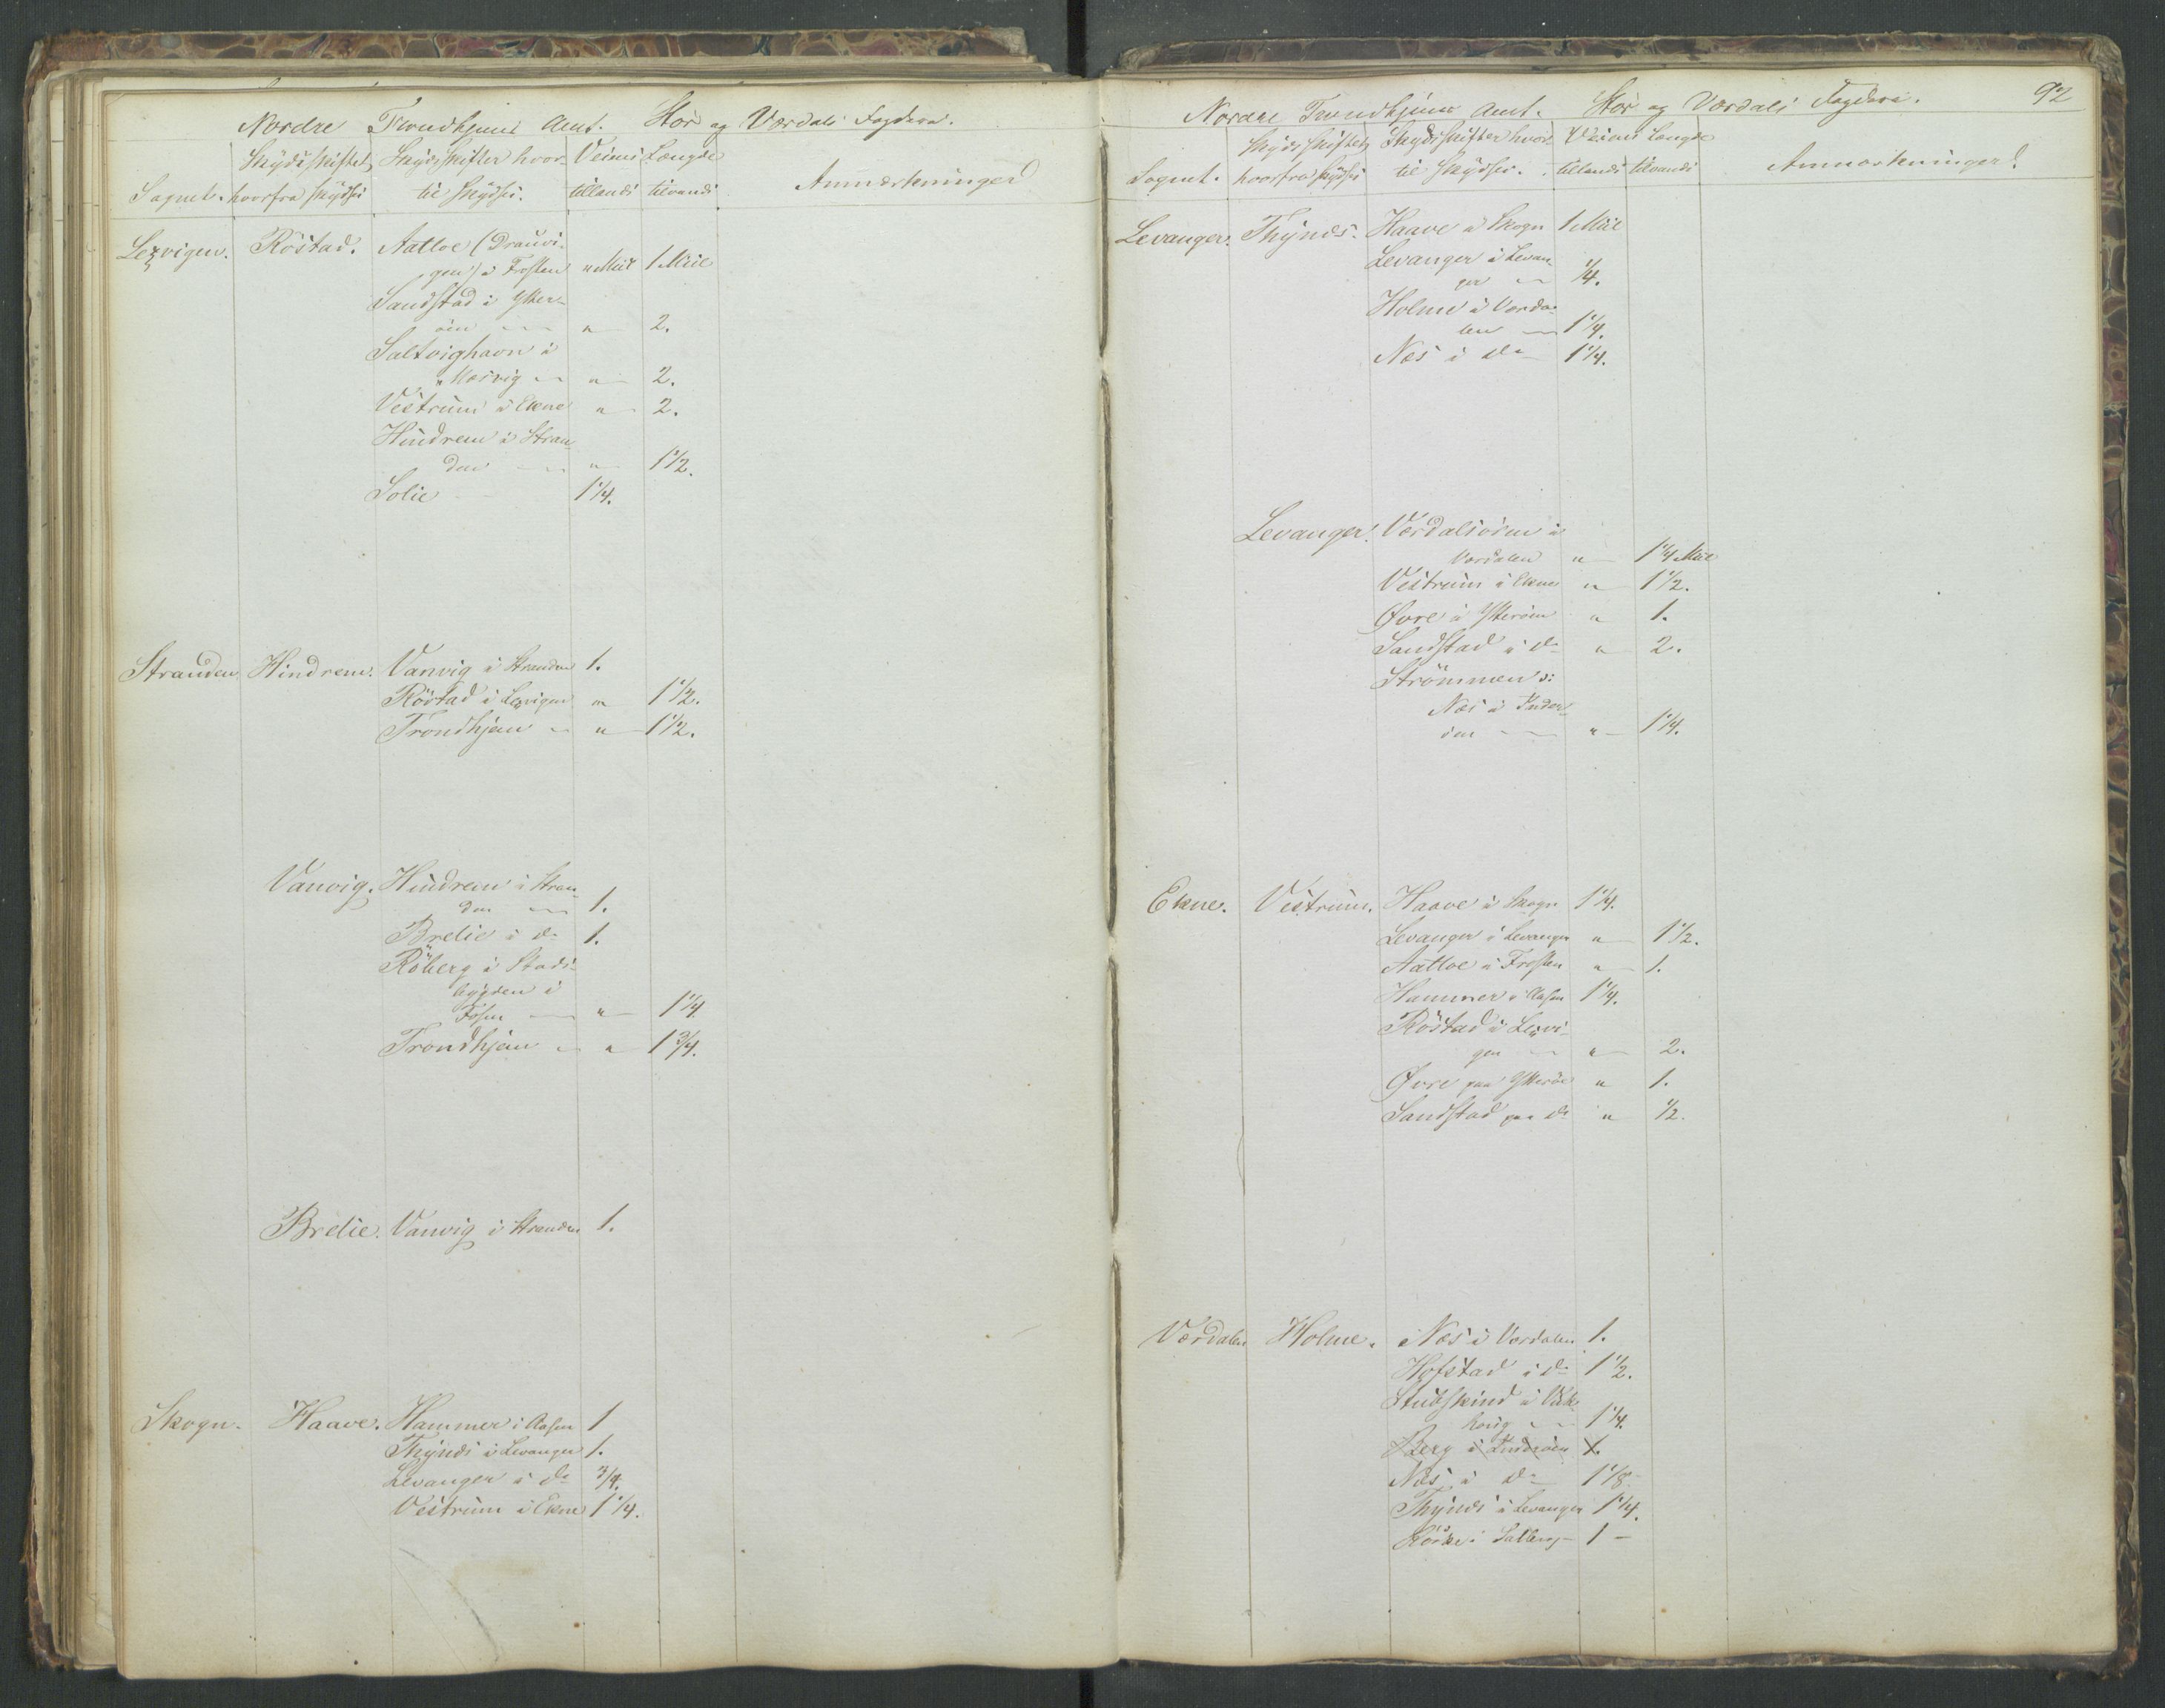 Nordre Trondhjems Amt. Stør og Værdals Fogderie.
Skydsskiftet Skydsskifter hvor- Veiens Længde
Sognet. hvorfra skydses til skydses. tillands tilvands Anmærkninger
Lexvigen. Röstad. Aatloe (Drauvi-
gen) i Frosten " Miil 1 Miil
Sandstad i Ytter-
öen " 2.
Saltvighavn i
Mosvig " 2.
Vestrum i Ekne " 2.
Hindrem i Stran-
den " 1 1/2.
Solie 1 1/4.
Stranden Hindrem. Vanvig i Stranden 1.
Röstad i Lexvigen " 1 1/2.
Trondhjem " 1 1/2.
Vanvig. Hindrem i Stran-
den 1.
Brelie i do 1.
Röberg i Stads-
bygden i
Fosen " 1 1/4
Trondhjem " 1 3/4.
Brelie. Vanvig i Stranden 1.
Skogn. Haave. Hammer i Aasen 1
Thynæs i Levanger 1.
Levanger i do 3/4.
Vestrum i Ekne 1 1/4.
92
Nordre Trondhjems Amt. Stør og Værdals Fogderie.
Skydsskiftet Skydsskifter hvor- Veiens Længde
Sognet. hvorfra skydses til skydses. tillands tilvands Anmærkninger
Levanger. Thynæs. Haave i Skogn 1 Miil
Levanger i Levan-
ger 1/4.
Holme i Værda-
len 1 1/4.
Næs i do 1 1/4.
Levanger. Værdalsören i
Værdalen " 1 1/4 Miil
Vestrum i Ekne " 1 1/2.
Øvre i Ytteröen " 1.
Sandstad i do " 2.
Strömmen o:
Næs i Inder-
öen " 1 1/4.
Ekne. Vestrum. Haave i Skogn 1 1/4.
Levanger i Levanger " 1 1/2.
Aatloe i Frosten " 1.
Hammer i Aasen 1 1/4.
Röstad i Lexvi-
gen " 2.
Øvre paa Ytteröe " 1.
Sandstad paa do " 1/2.
Værdalen Holme. Næs i Værdalen 1.
Hofstad i do 1 1/2.
Stubskind i Vuk-
1 1/4.
Berg i Inderöen 1.
Næs i do 1 1/8
Thynæs i Levanger 1 1/4.
Röske i Salberg 1